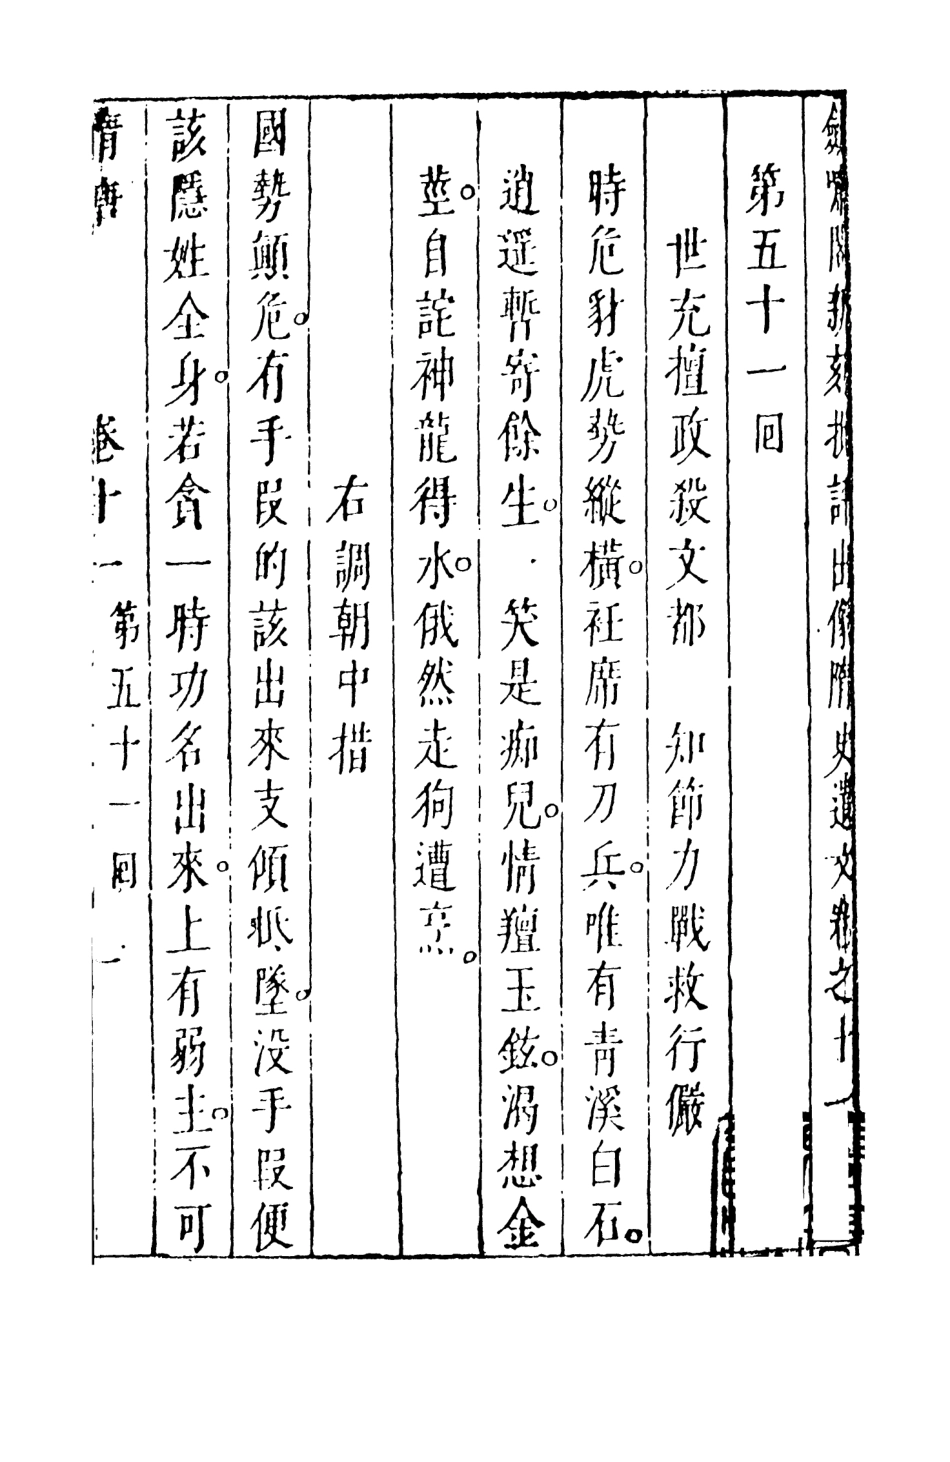 劍嘯閣新刻批評出像隋史遺文卷之十一
第五十一回
世充擅政殺文都　知節力戰救行儼
時危豺虎勢縱橫。衽席有刀兵。唯有青溪白石。
逍遥暫寄餘生。．笑是痴兒。情羶玉鉉。渴想金
莖。自詫神龍得水。俄然走狗遭烹。
右調朝中措
國勢顛危。有手段的該出來支傾扺墜。没手段便
該隱姓全身。若貪一時功名出來。上有弱主。不可
隋唐　卷十一　第五十一回　一